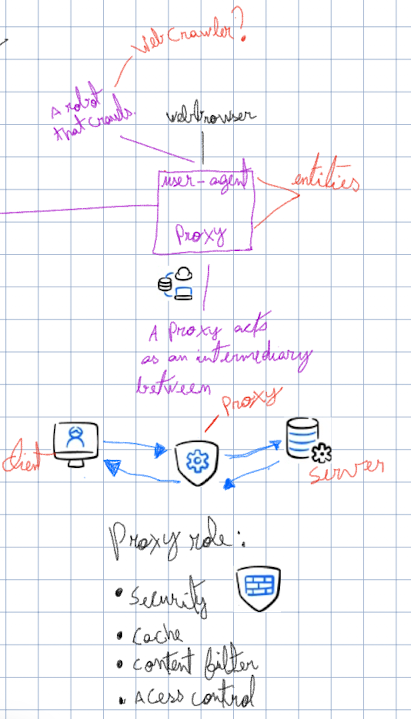 WebCrawler?
A robot
that crawls.
webbrowser
user-agent
entities
Proxy
A Proxy acts
as an intermediary
between
Proxy
Client
Server
Proxy role:
• Security
• cache
• content filter
• Acess control